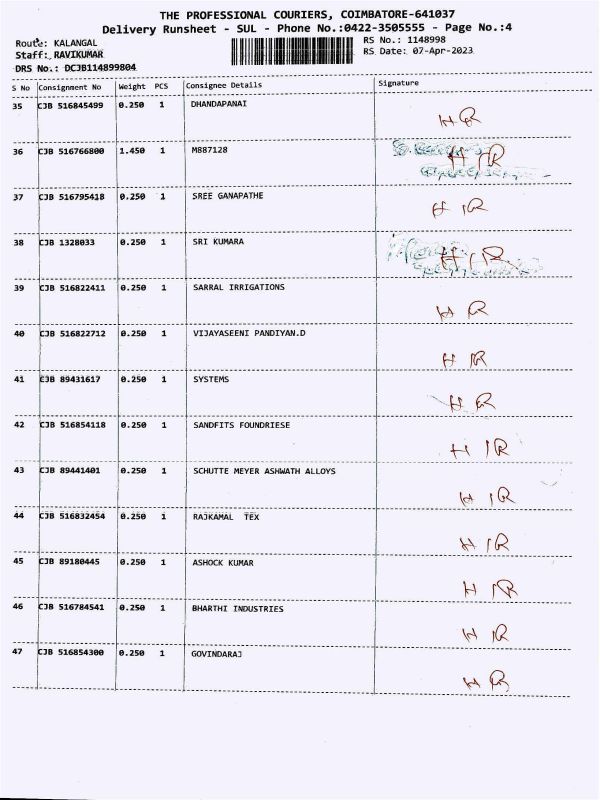 THE PROFESSIONAL COURIERS, COIMBATORE-641037
Delivery Runsheet - SUL - Phone No.:0422-3505555 - Page No.:4
Route: KALANGAL
RS No.: 1148998
Staff: RAVIKUMAR
RS Date: 07-Apr-2023
DRS No.: DCJB114899804
S No Consignment No Weight PCS Consignee Details Signature
35 CJB 516845499 0.250 1 DHANDAPANAI
H R
36 CJB 516766800 1.450 1 M887128
H R
37 CJB 516795418 0.250 1 SREE GANAPATHE
H R
38 CJB 1328033 0.250 1 SRI KUMARA
H R
39 CJB 516822411 0.250 1 SARRAL IRRIGATIONS
H R
40 CJB 516822712 0.250 1 VIJAYASEENI PANDIYAN.D
H R
41 CJB 89431617 0.250 1 SYSTEMS
H R
42 CJB 516854118 0.250 1 SANDFITS FOUNDRIESE
H R
43 CJB 89441401 0.250 1 SCHUTTE MEYER ASHWATH ALLOYS
H R
44 CJB 516832454 0.250 1 RAJKAMAL TEX
H R
45 CJB 89180445 0.250 1 ASHOCK KUMAR
H R
46 CJB 516784541 0.250 1 BHARTHI INDUSTRIES
H R
47 CJB 516854300 0.250 1 GOVINDARAJ
H R